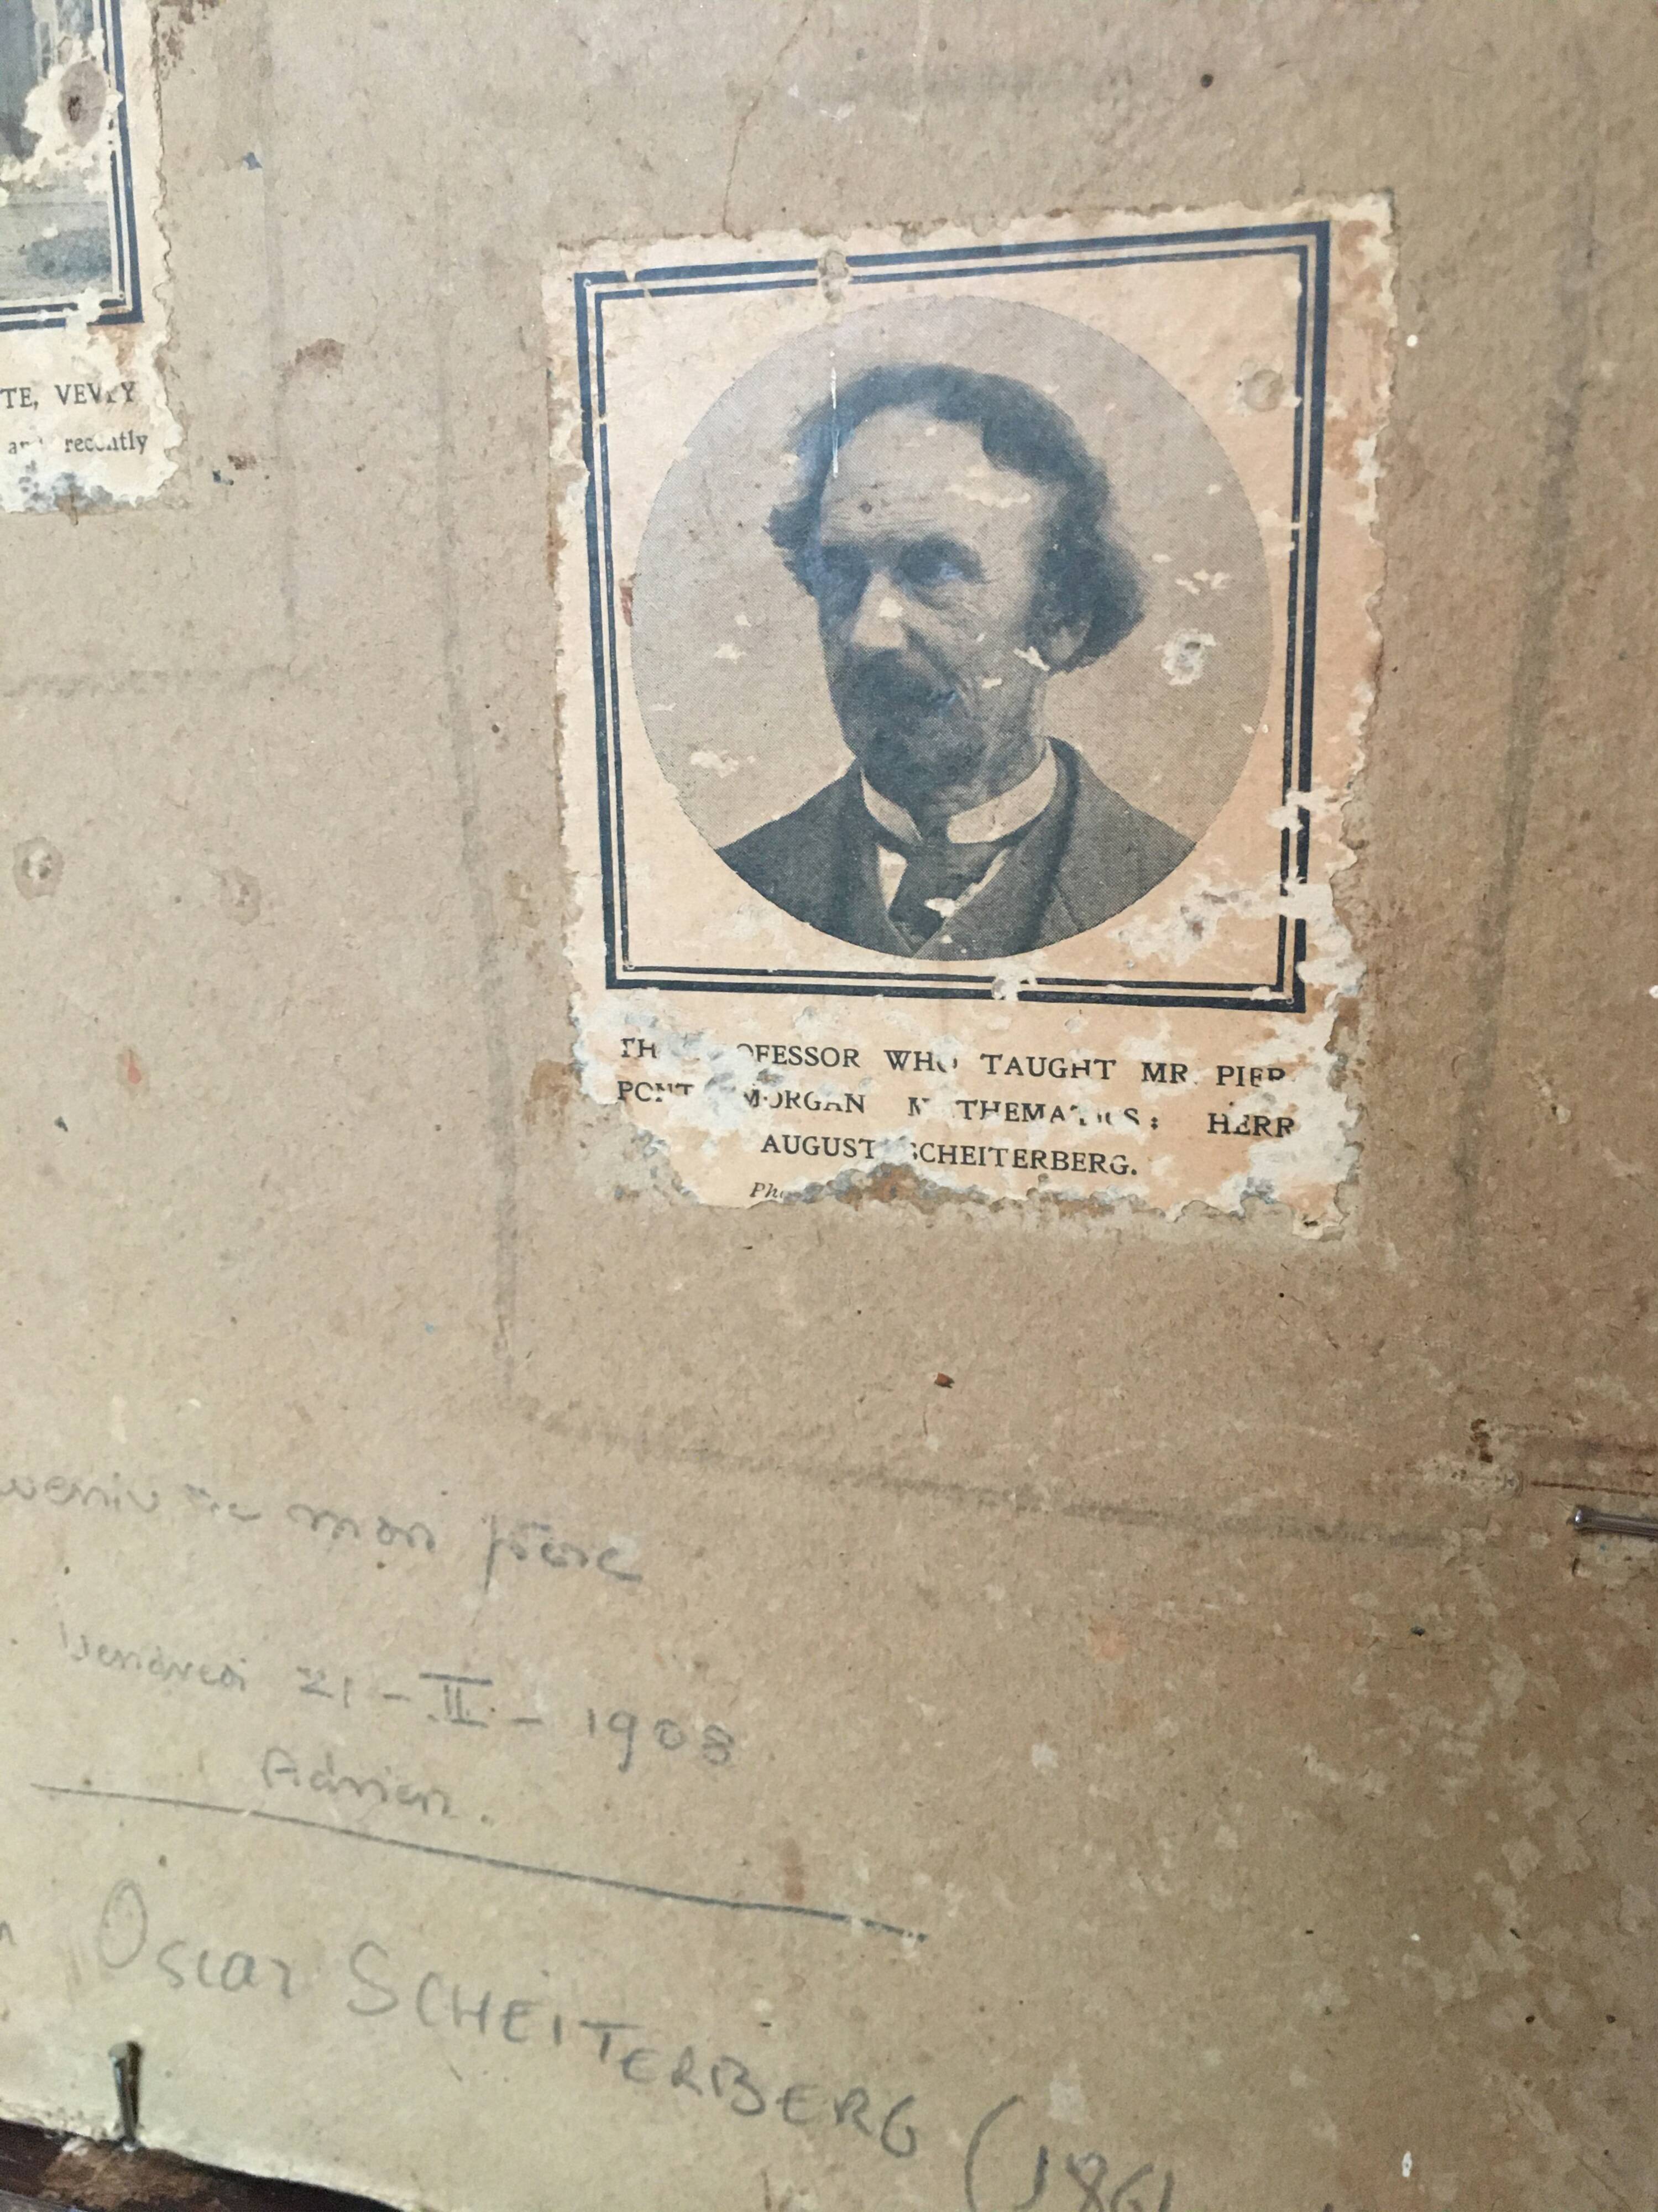 TE, VEVEY
and recently
TH OFESSOR WHO TAUGHT MR. PIER
PONT MORGAN M THEMATICS: HERR
AUGUST SCHEITERBERG.
Pho
uvenir de mon père
Vendredi 21-II-1908
Adrien.
Oscar SCHEITERBERG (1861